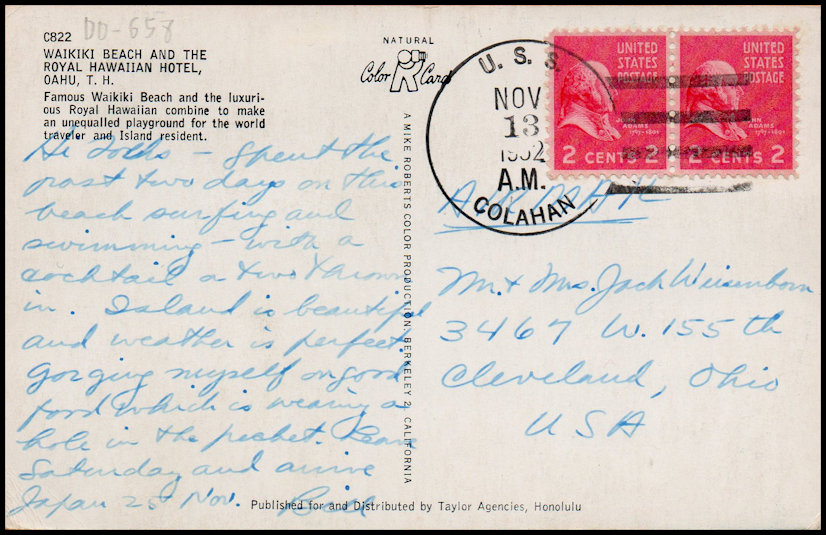 DD-658
C822
WAIKIKI BEACH AND THE
ROYAL HAWAIIAN HOTEL,
OAHU, T. H.
Famous Waikiki Beach and the luxuri-
ous Royal Hawaiian combine to make
an unequalled playground for the world
traveler and Island resident.
Hi Folks — Spent the
past two days on this
beach surfing and
swimming — with a
cocktail or two thrown
in. Island is beautiful
and weather is perfect.
Gorging myself on good
food which is wearing a
hole in the pocket. Leave
Saturday and arrive
Japan 25 Nov. Bill
NATURAL
Color Card
A MIKE ROBERTS COLOR PRODUCTION, BERKELEY 2, CALIFORNIA
U. S. S.
NOV
13
1952
A.M.
COLAHAN
UNITED
STATES
POSTAGE
JOHN
ADAMS
1797-1801
2 CENTS 2
UNITED
STATES
POSTAGE
JOHN
ADAMS
1797-1801
2 CENTS 2
Mr. + Mrs. Jack Weisenborn
3467 W. 155 th
Cleveland, Ohio
USA
Published for and Distributed by Taylor Agencies, Honolulu